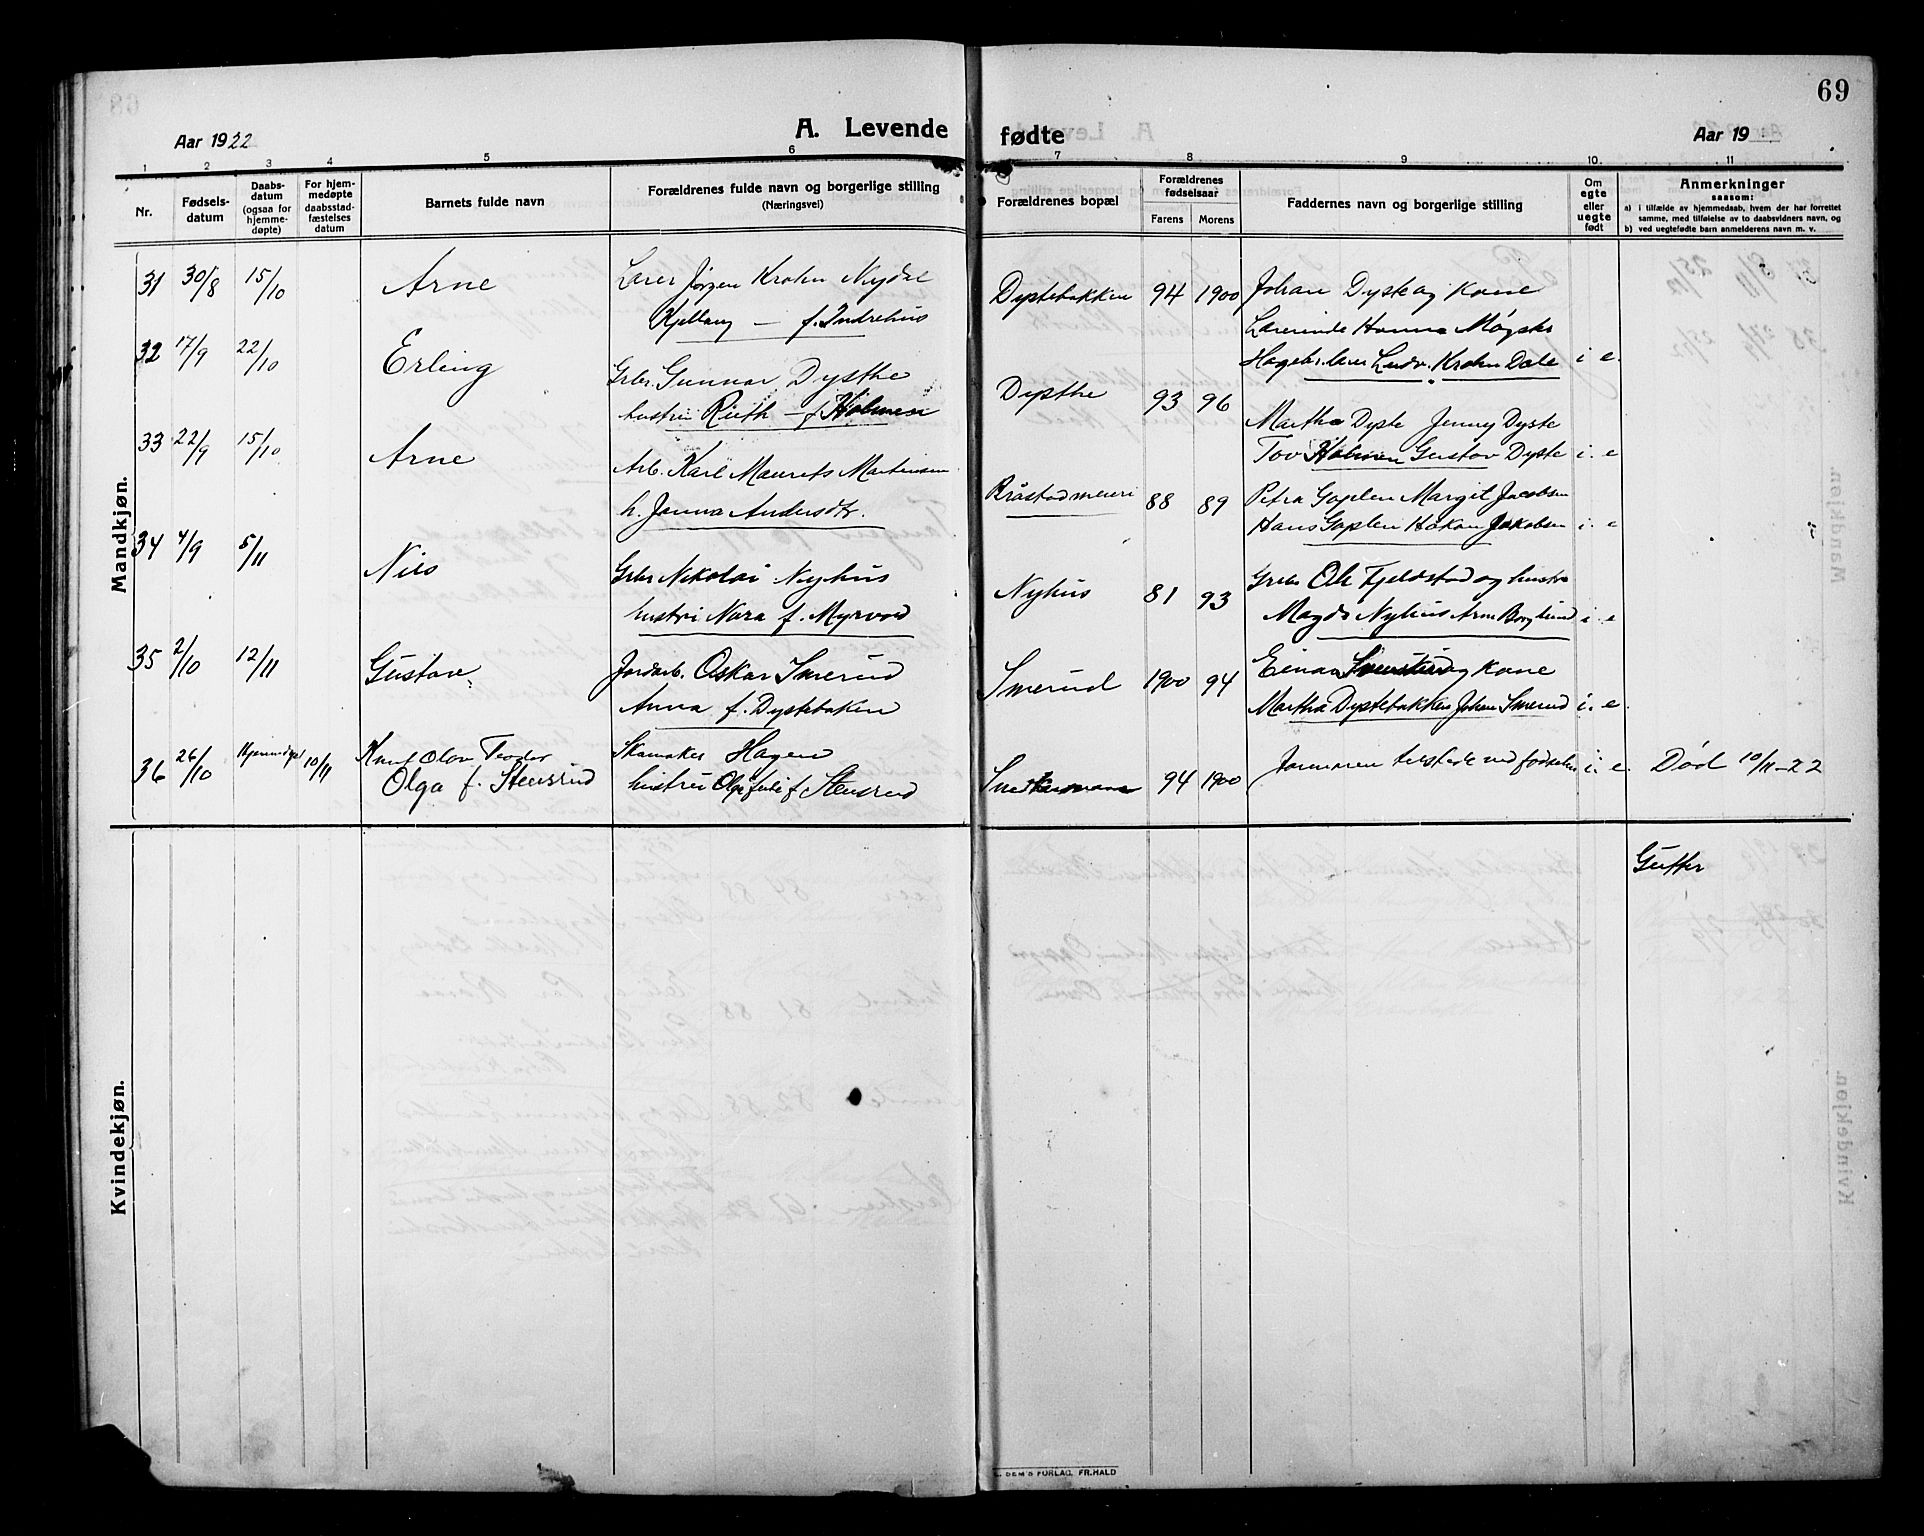 69
Aar 1922
A. Levende fødte
Aar 19
1 2 3 4 5 6 7 8 9 10 11
Nr.
Fødsels-
datum
Daabs-
datum
(ogsaa for
hjemme-
døpte)
For hjem-
medøpte
daabsstad-
fæstelses
datum
Barnets fulde navn
Forældrenes fulde navn og borgerlige stilling
(Næringsvei)
Forældrenes bopæl
Forældrenes
fødselsaar
Farens Morens
Faddernes navn og borgerlige stilling
Om
egte
eller
uegte
født
Anmerkninger
saasom:
a) i tilfælde av hjemmedaab, hvem der har forrettet
samme, med tilføielse av to daabsvidners navn, og
b) ved uegtefødte barn anmelderens navn m. v.
Mandkjøn.
31 30/8 15/10 Arne
Lærer Jørgen Krohn Nydal
f. Indrehus
Dystebakken 94 1900
Johan Dyste og Kone
Lærerinde Hanna Møgster
Hagebr.lærer Ludv. Krohn Dale i e.
32 17/9 22/10 Erling
Grbr. Gunnar Dysthe
hustru Ruth f. Holmen
Dysthe 93 96
Martha Dyste Jenny Dyste
Tov Holmen Gustav Dyste i. e
33 22/9 15/10 Arne
Arb. Karl Maurits Martinsen
h. Janna Andersdtr.
Kråstadmeieri 88 89
Petra Gaplen Margit Jacobsen
Hans Gaplen Håkon Jakobsen i. e
34 4/9 5/11 Nils
Grbr Nikolai Nyhus
hustru Nora f. Myrvold
Nyhus 81 93
Grbr Ole Fjeldstad og hustru
Magda Nyhus Arne Borglund i. e
35 2/10 12/11 Gustav
Jordarb. Oskar Smerud
Anna f. Dystebakken
Smerud 1900 94
Einar Smerud og Kone
Martha Dystebakken Johan Smerud i. e.
36 26/10 Hjemmedøpt 10/11 Knut Olav Teodor
Olga f. Stensrud
Skomaker Hagen
hustru Olga f. Stensrud
94 1900
Jormoren tilstede ved fødselen i. e. Død 10/11-22
Gutter
Kvindekjøn.
FORLAG, FR. HALD